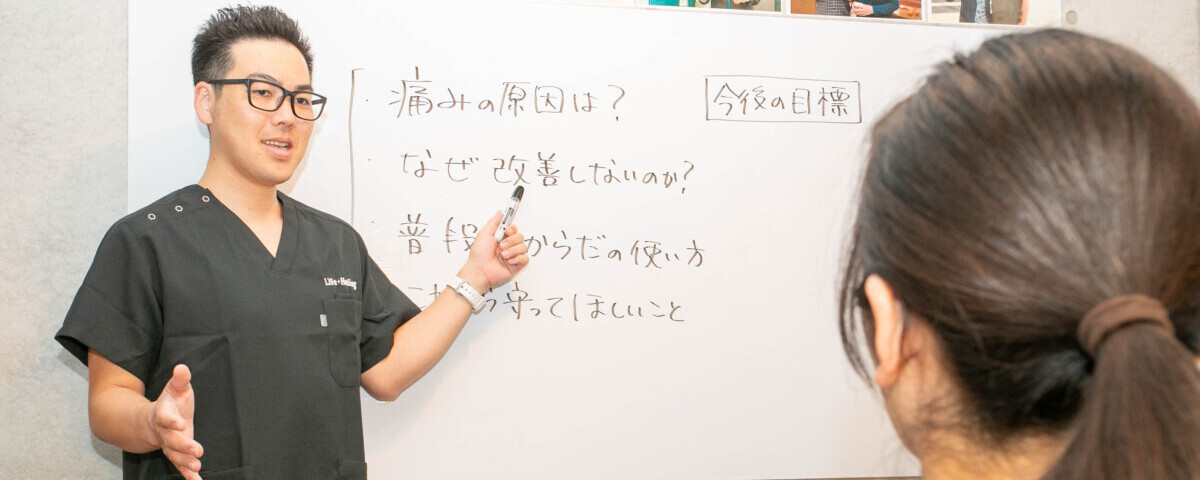 ・痛みの原因は?
今後の目標
・なぜ改善しないのか?
・普段 からだの使い方
守ってほしいこと
Life+Healing